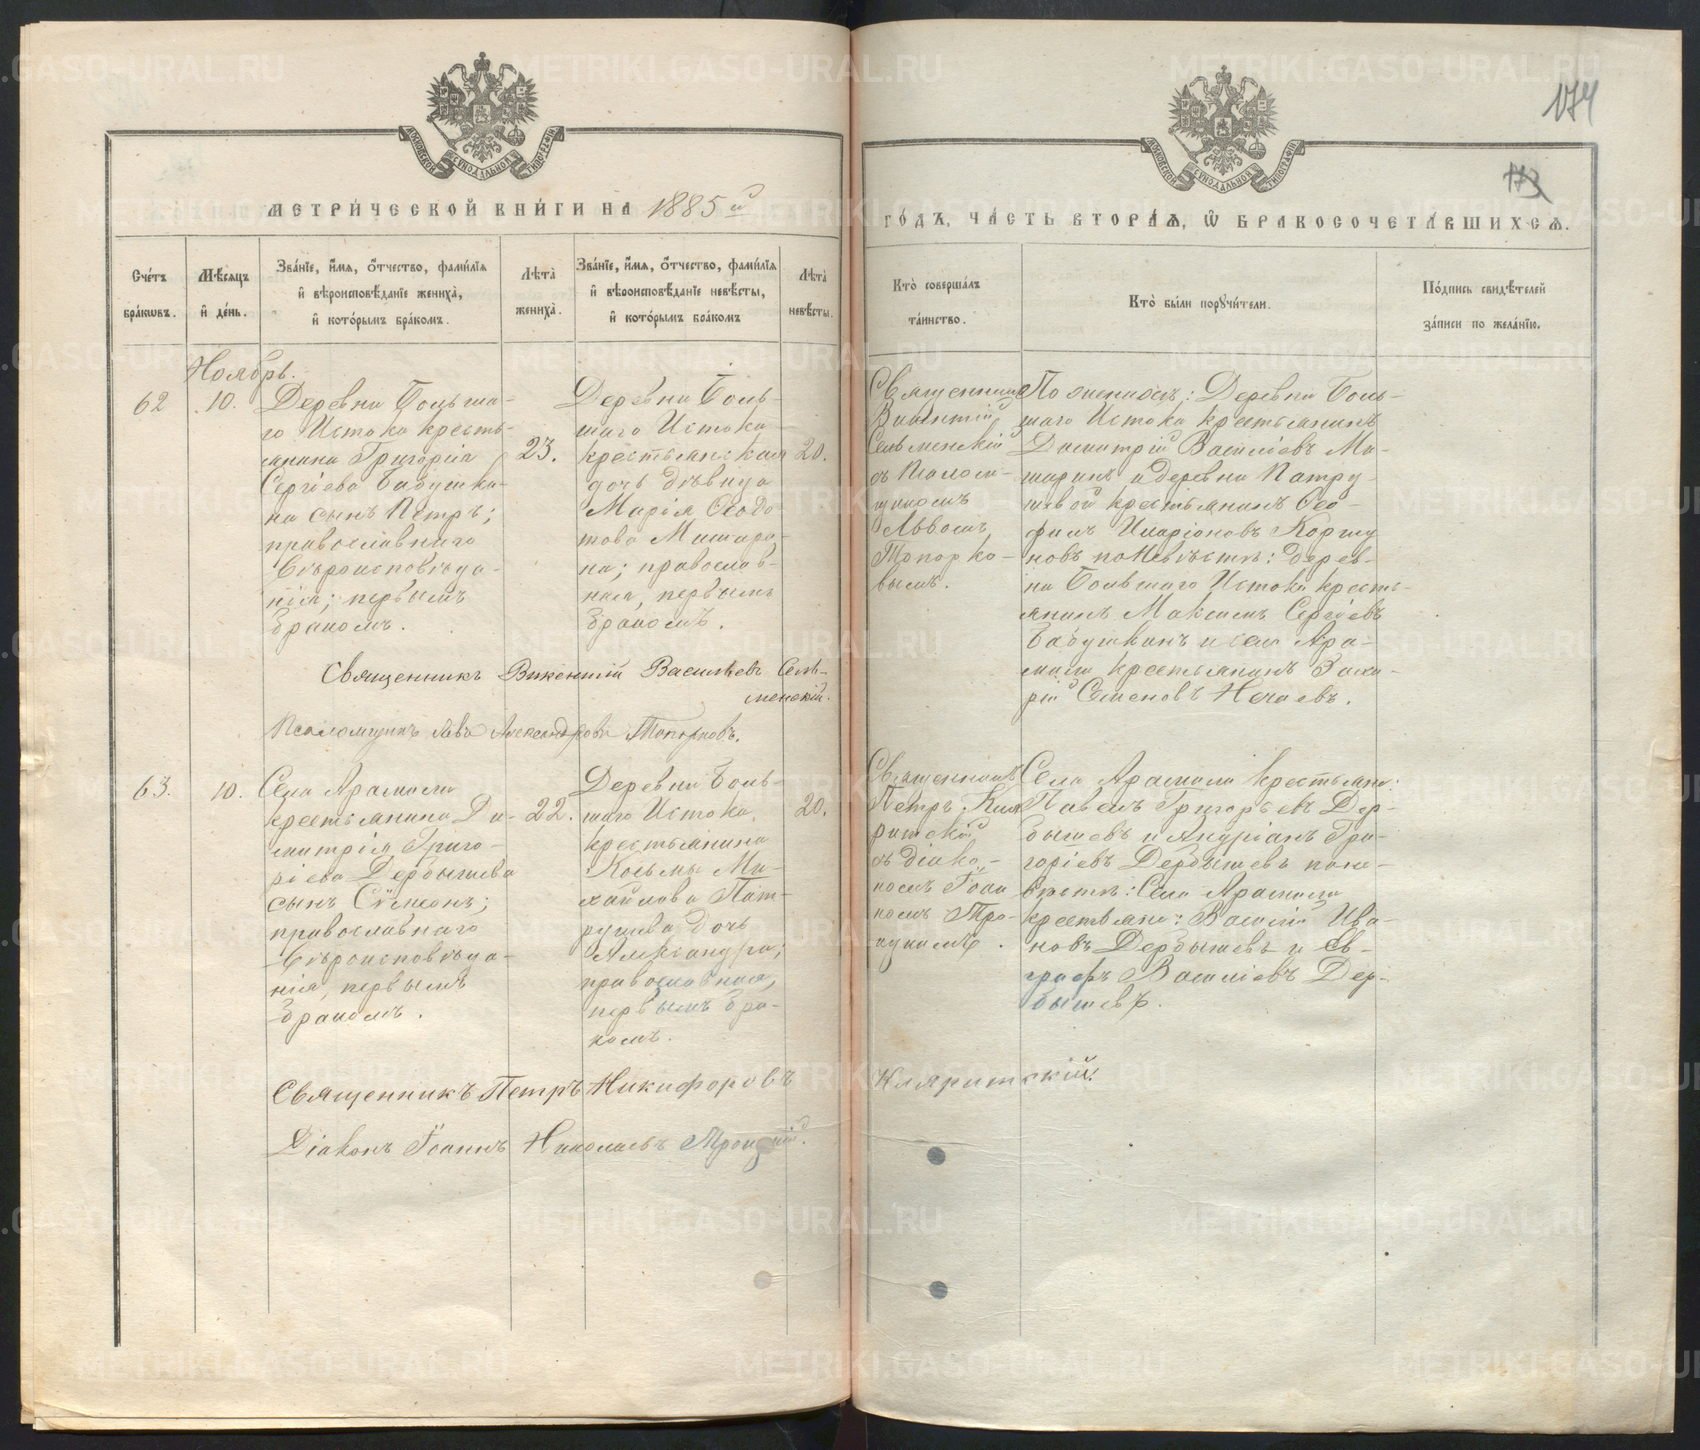 174
173
МЕТРИ́ЧЕСКОЙ КНИ́ГИ НА 1885й
ГО́ДЪ, ЧА́СТЬ ВТОРА́Я, Ѽ БРАКОСОЧЕТА́ВШИХСЯ.
Сче́тъ бра́кѡвъ.
Мѣ́сяцъ и҆ де́нь.
Зва́нїе, и҆́мя, ѻ҆́тчество, фами́лїя и҆ вѣроисповѣ́данїе жениха̀, и҆ кото́рымъ бра́комъ.
Лѣта̀ жениха̀.
Зва́нїе, и҆́мя, ѻ҆́тчество, фами́лїя и҆ вѣроисповѣ́данїе невѣ́сты, и҆ кото́рымъ бра́комъ
Лѣта̀ невѣ́сты.
Кто̀ соверша́лъ та́инство.
Кто̀ бы́ли поручи́тели.
По́дпись свидѣ́телей за́писи по жела́нїю.
Ноябрь.
62
10.
Деревни Больша-
го Истока кресть-
янина Григорія
Сергіева Бабушки-
на сынъ Петръ;
православнаго
вѣроисповѣда-
нія; первымъ
бракомъ.
23.
Деревни Боль-
шаго Истока
крестьянская
дочь дѣвица
Марія Ѳеодо-
това Мишари-
на; православ-
ная, первымъ
бракомъ.
20.
Священникъ
Викентій
Сельменскій
съ Псалом-
щикомъ
Львомъ
Топорко-
вымъ.
По женихѣ: Деревни Боль-
шаго Истока крестьянинъ
Димитрій Василіевъ Ми-
шаринъ и деревни Патру-
шевой крестьянинъ Ѳео-
филъ Иларіоновъ Коршу
новъ по невѣстѣ: дерев-
ни Большаго Истока кресть-
янинъ Максимъ Сергіевъ
Бабушкинъ и села Ара-
мили крестьянинъ Заха-
рій Семеновъ Нечаевъ.
Священникъ Викентій Васильевъ Сель-
менскій.
Псаломщикъ Левъ Александровъ Топорковъ.
63.
10.
Села Арамили
крестьянина Ди-
митрія Григо-
ріева Дербышева
сынъ Сѵмеонъ;
православнаго
вѣроисповѣда-
нія, первымъ
бракомъ.
22.
Деревни Боль-
шаго Истока,
крестьянина
Козьмы Ми-
хайлова Пат-
рушева дочь
Александра;
православная,
первымъ бра-
комъ.
20.
Священникъ
Петръ Кля
ритскій
съ діако-
номъ Іоан
номъ Тро-
ицкимъ.
Села Арамили крестьяне:
Павелъ Григорьевъ Дер-
бышевъ и Андріанъ Гри-
горіевъ Дербышевъ по не-
вѣстѣ: Села Арамили
крестьяне: Василій Ива-
новъ Дербышевъ и Ев-
графъ Василіевъ Дер-
бышевъ.
Священникъ Петръ Никифоровъ Кляритскій.
Діаконъ Іоаннъ Николаевъ Троицкій.